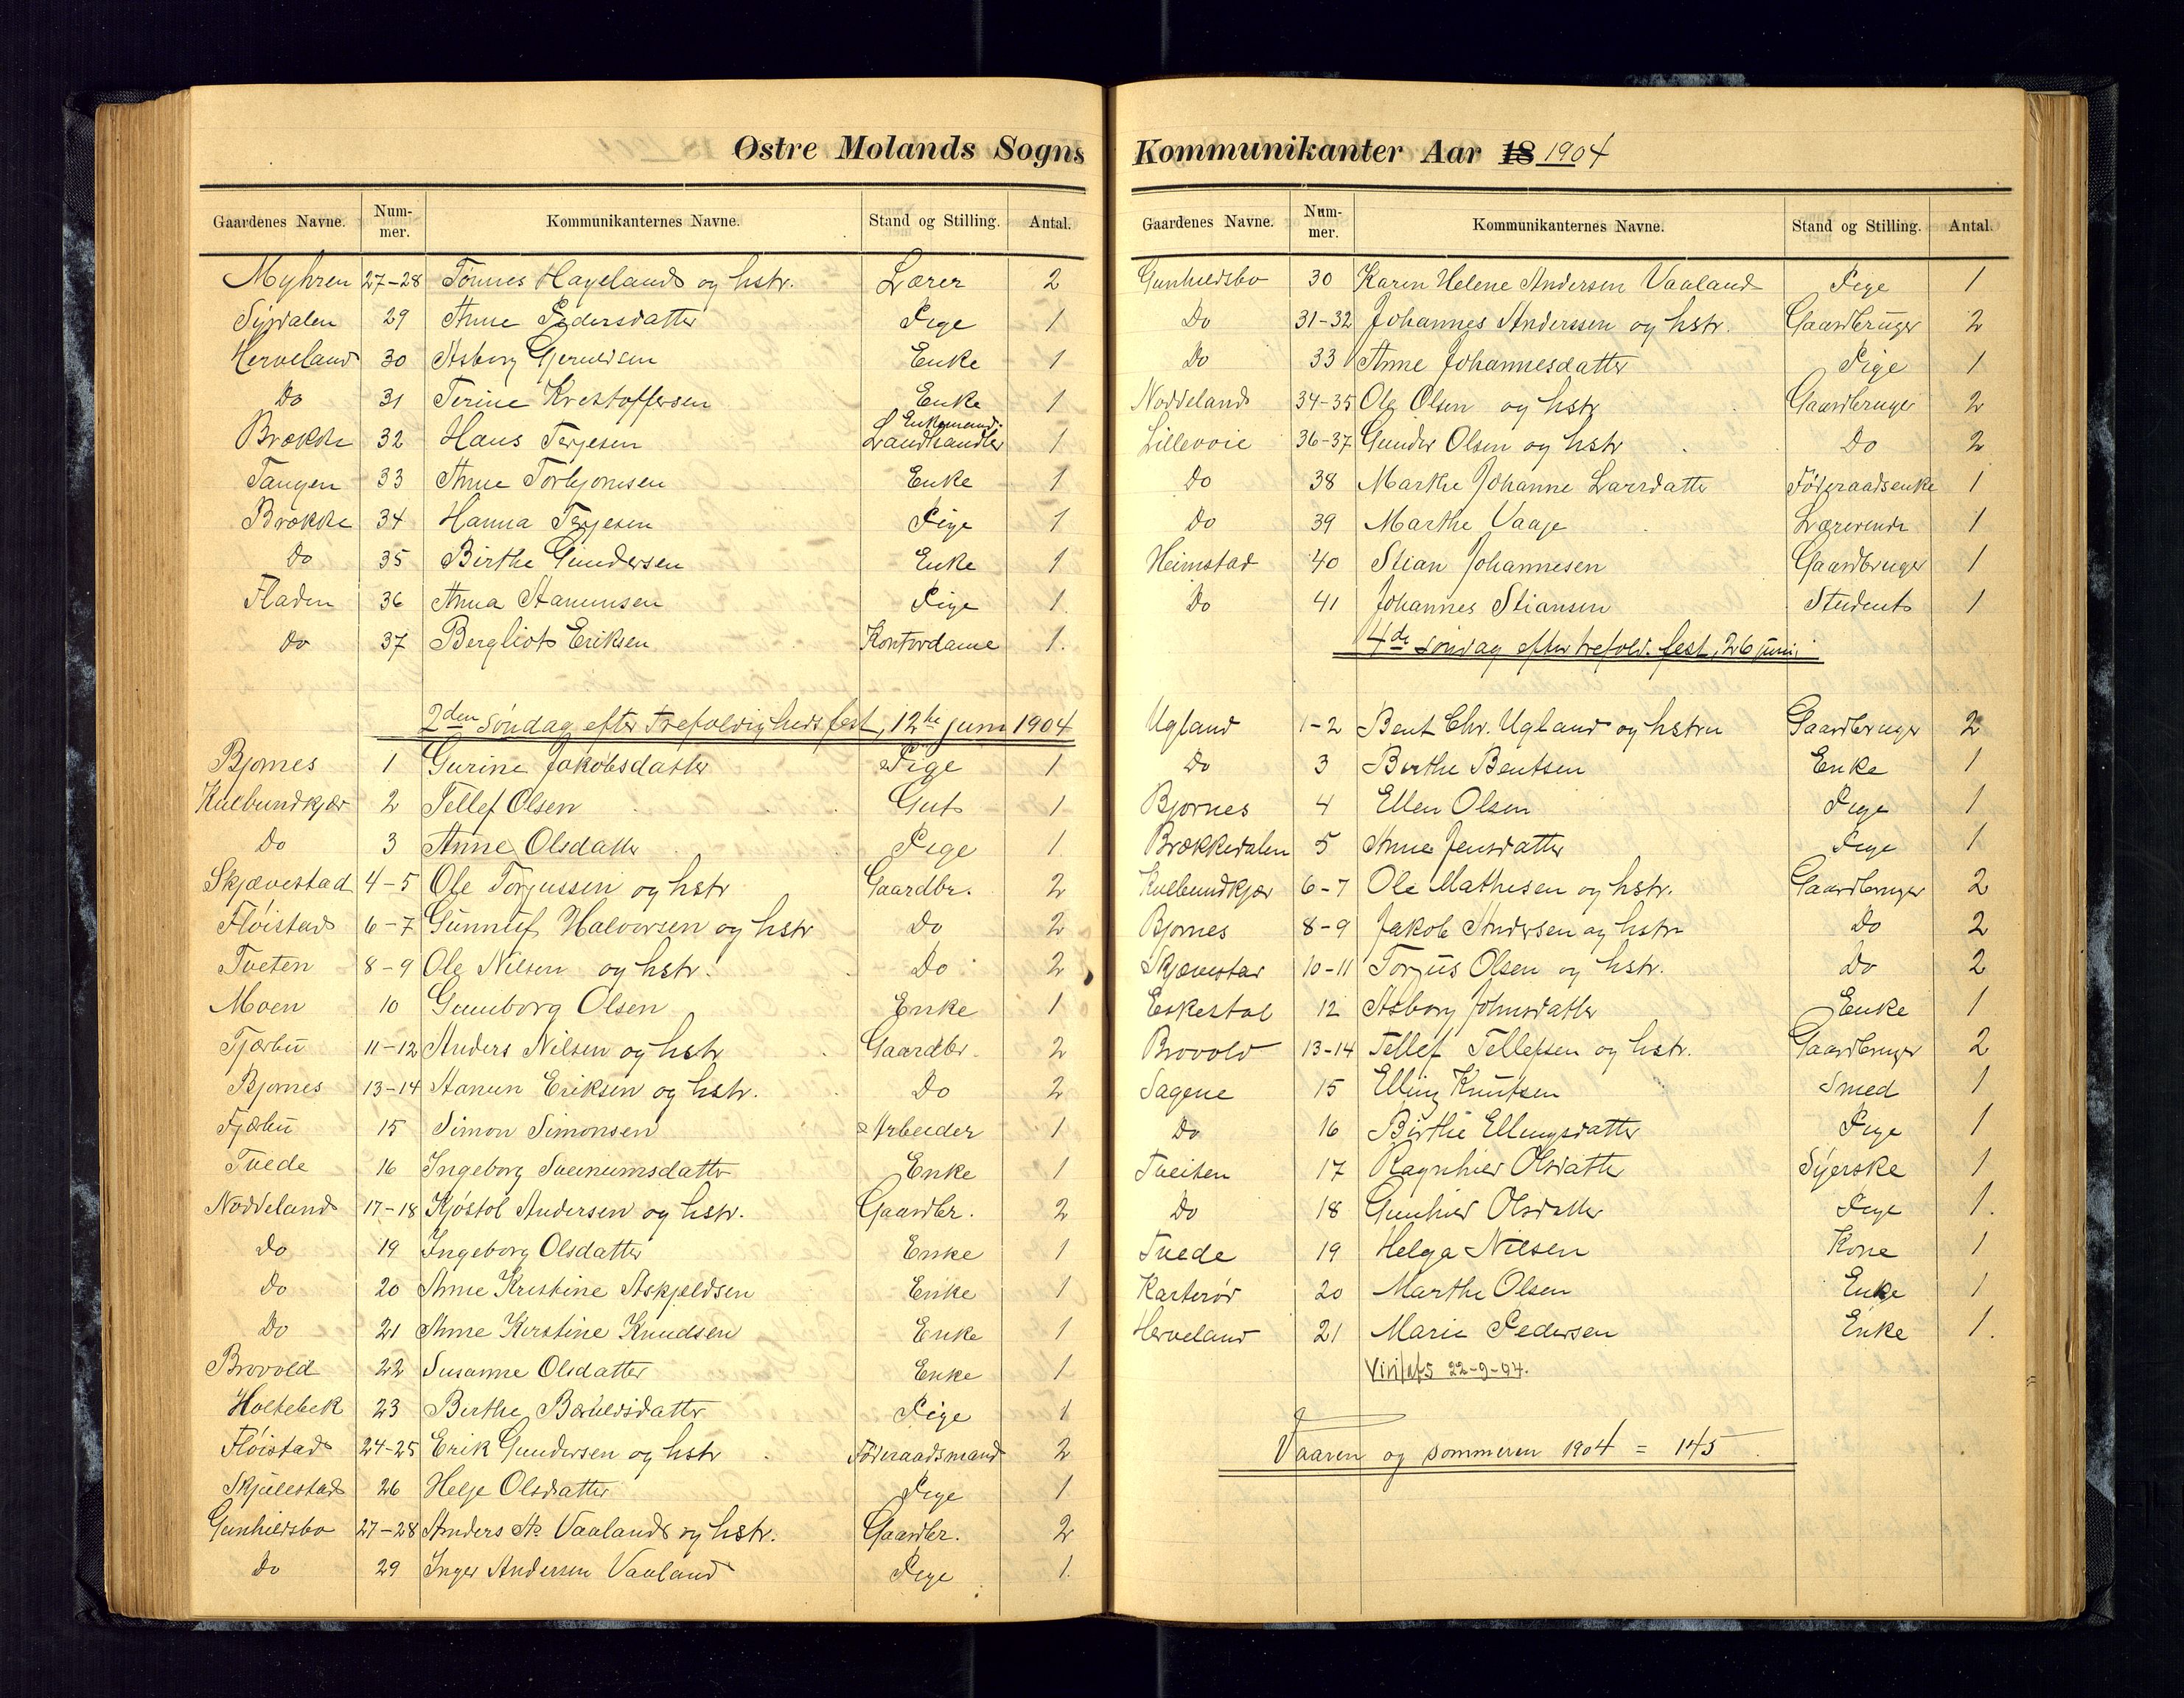 Østre Molands Sogns
Gaardenes Navne. Num-mer. Kommunikanternes Navne. Stand og Stilling. Antal.
Myhren 27-28 Tønnes Hageland og hstr. Lærer 2
29 Anne Pedersdatter Pige 1
Herveland 30 Asborg Enke 1
Do 31 Terine Kristoffersen Enke 1
Enkemand.
Brække 32 Hans Terjesen Landhandler 1
Tangen 33 Anne Torbjørnsen Enke 1
Brække 34 Hanna Terjesen Pige 1
Do 35 Birthe Gundersen Enke 1
Fladen 36 Anna Stamunsen Pige 1.
Do 37 Bergliot Eriksen Kontordame 1.
2den Søndag efter Trefoldighedsfest, 12te juni 1904
Bjørnes 1 Gurine Jakobsdatter Pige 1
Kulbundkjær 2 Tellef Olsen Gut 1
Do 3 Anne Olsdatter Pige 1
Skjævestad 4-5 Ole Torjussen og hstr Gaardbr. 2
Fløistad 6-7 Gunnuf Halvorsen og hstr Do 2
Tveten 8-9 Ole Nilsen og hstr. Do 2
Moen 10 Gunborg Olsen Enke 1
Tjærbu 11-12 Anders Nilsen og hstr Gaardbr. 2
Bjørnes 13-14 Eriksen og hstr. Do 2
Tjærbu 15 Simon Simonsen Arbeider 1
Tvede 16 Ingeborg Enke 1
Noddeland 17-18 Kjøstol Andersen og hstr. Gaardbr. 2
Do 19 Ingeborg Olsdatter Enke 1
Do 20 Anne Kristine Askjeldsen Enke 1
Do 21 Anne Kirstine Knudsen Enke 1
Brovold 22 Susanne Olsdatter Enke 1
Holtebek 23 Berthe Pige 1
Fløistad 24-25 Erik Gundersen og hstr Føderaadsmand 2
26 Helje Olsdatter Pige 1
Gunhildsbo 27-28 Anders As. Vaaland og hstr. Gaardbr. 2
Do 29 Inger Andersen Vaaland Pige 1.
Kommunikanter Aar 18 1904
Gaardenes Navne. Num-mer. Kommunikanternes Navne. Stand og Stilling. Antal.
Gunhildsbo 30 Karen Helene Andersen Vaaland Pige 1
Do 31-32 Johannes Anderssen og hstr. Gaardbruger 2
Do 33 Anne Johannesdatter Pige 1
Noddeland 34-35 Ole Olsen og hstr Gaardbruger 2
Lillevoie 36-37 Gunder Olsen og hstr Do 2
Do 38 Marthe Johanne Larsdatter Føderaadsenke 1
Do 39 Marthe Vaaje Lærerinde 1
Heimstad 40 Stian Johannesen Gaardbruger 1
Do 41 Johannes Stiansen Student 1
4de Søndag efter trefold. fest, 26 juni
Ugland 1-2 Bent Chr. Ugland og hstru Gaardbruger 2
Do 3 Berthe Bentsen Enke 1
Bjørnes 4 Ellen Olsen Pige 1
Brækkedalen 5 Anne Jensdatter Pige 1
Kulbundkjær 6-7 Ole Mathisen og hstr. Gaardbruger 2
Bjørnes 8-9 Jakob Andersen og hstr Do 2
Skjævestad 10-11 Torjus Olsen og hstr. Do 2
Eskestol 12 Asborg Johnsdatter Enke 1
Brovold 13-14 Tellef Tellefsen og hstr. Gaardbruger 2
Sagene 15 Elling Knutsen Smed 1
Do 16 Birthe Ellingsdatter Pige 1
Tveiten 17 Ragnhild Olsdatter Syerske 1
Do 18 Gunhild Olsdatter Pige 1.
Tvede 19 Helga Nilsen Kone 1
Karterød 20 Marthe Olsen Enke 1
Herveland 21 Marie Pedersen Enke 1.
22-9-04.
Vaaren og sommeren 1904 = 145